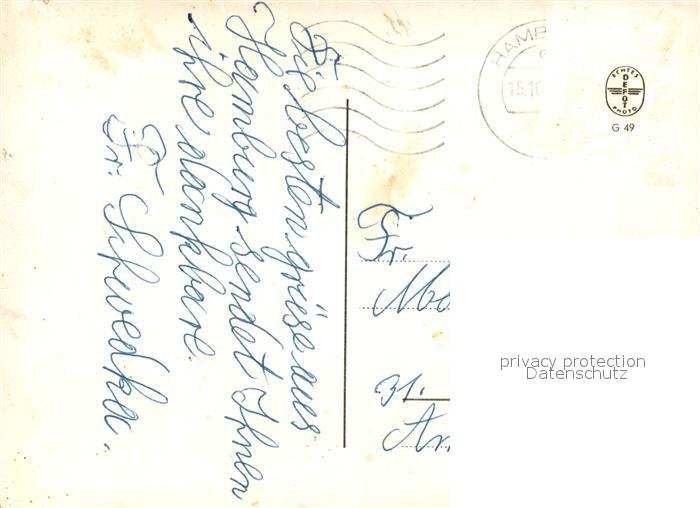 Die besten grüse aus
Hamburg sendet Ihnen
ihre dankbare.
Fr. Schwedka.
HAMB
15.10
ECHTES
DEFOT
PHOTO
G 49
Fr.
Mo
31.
An
privacy protection
Datenschutz